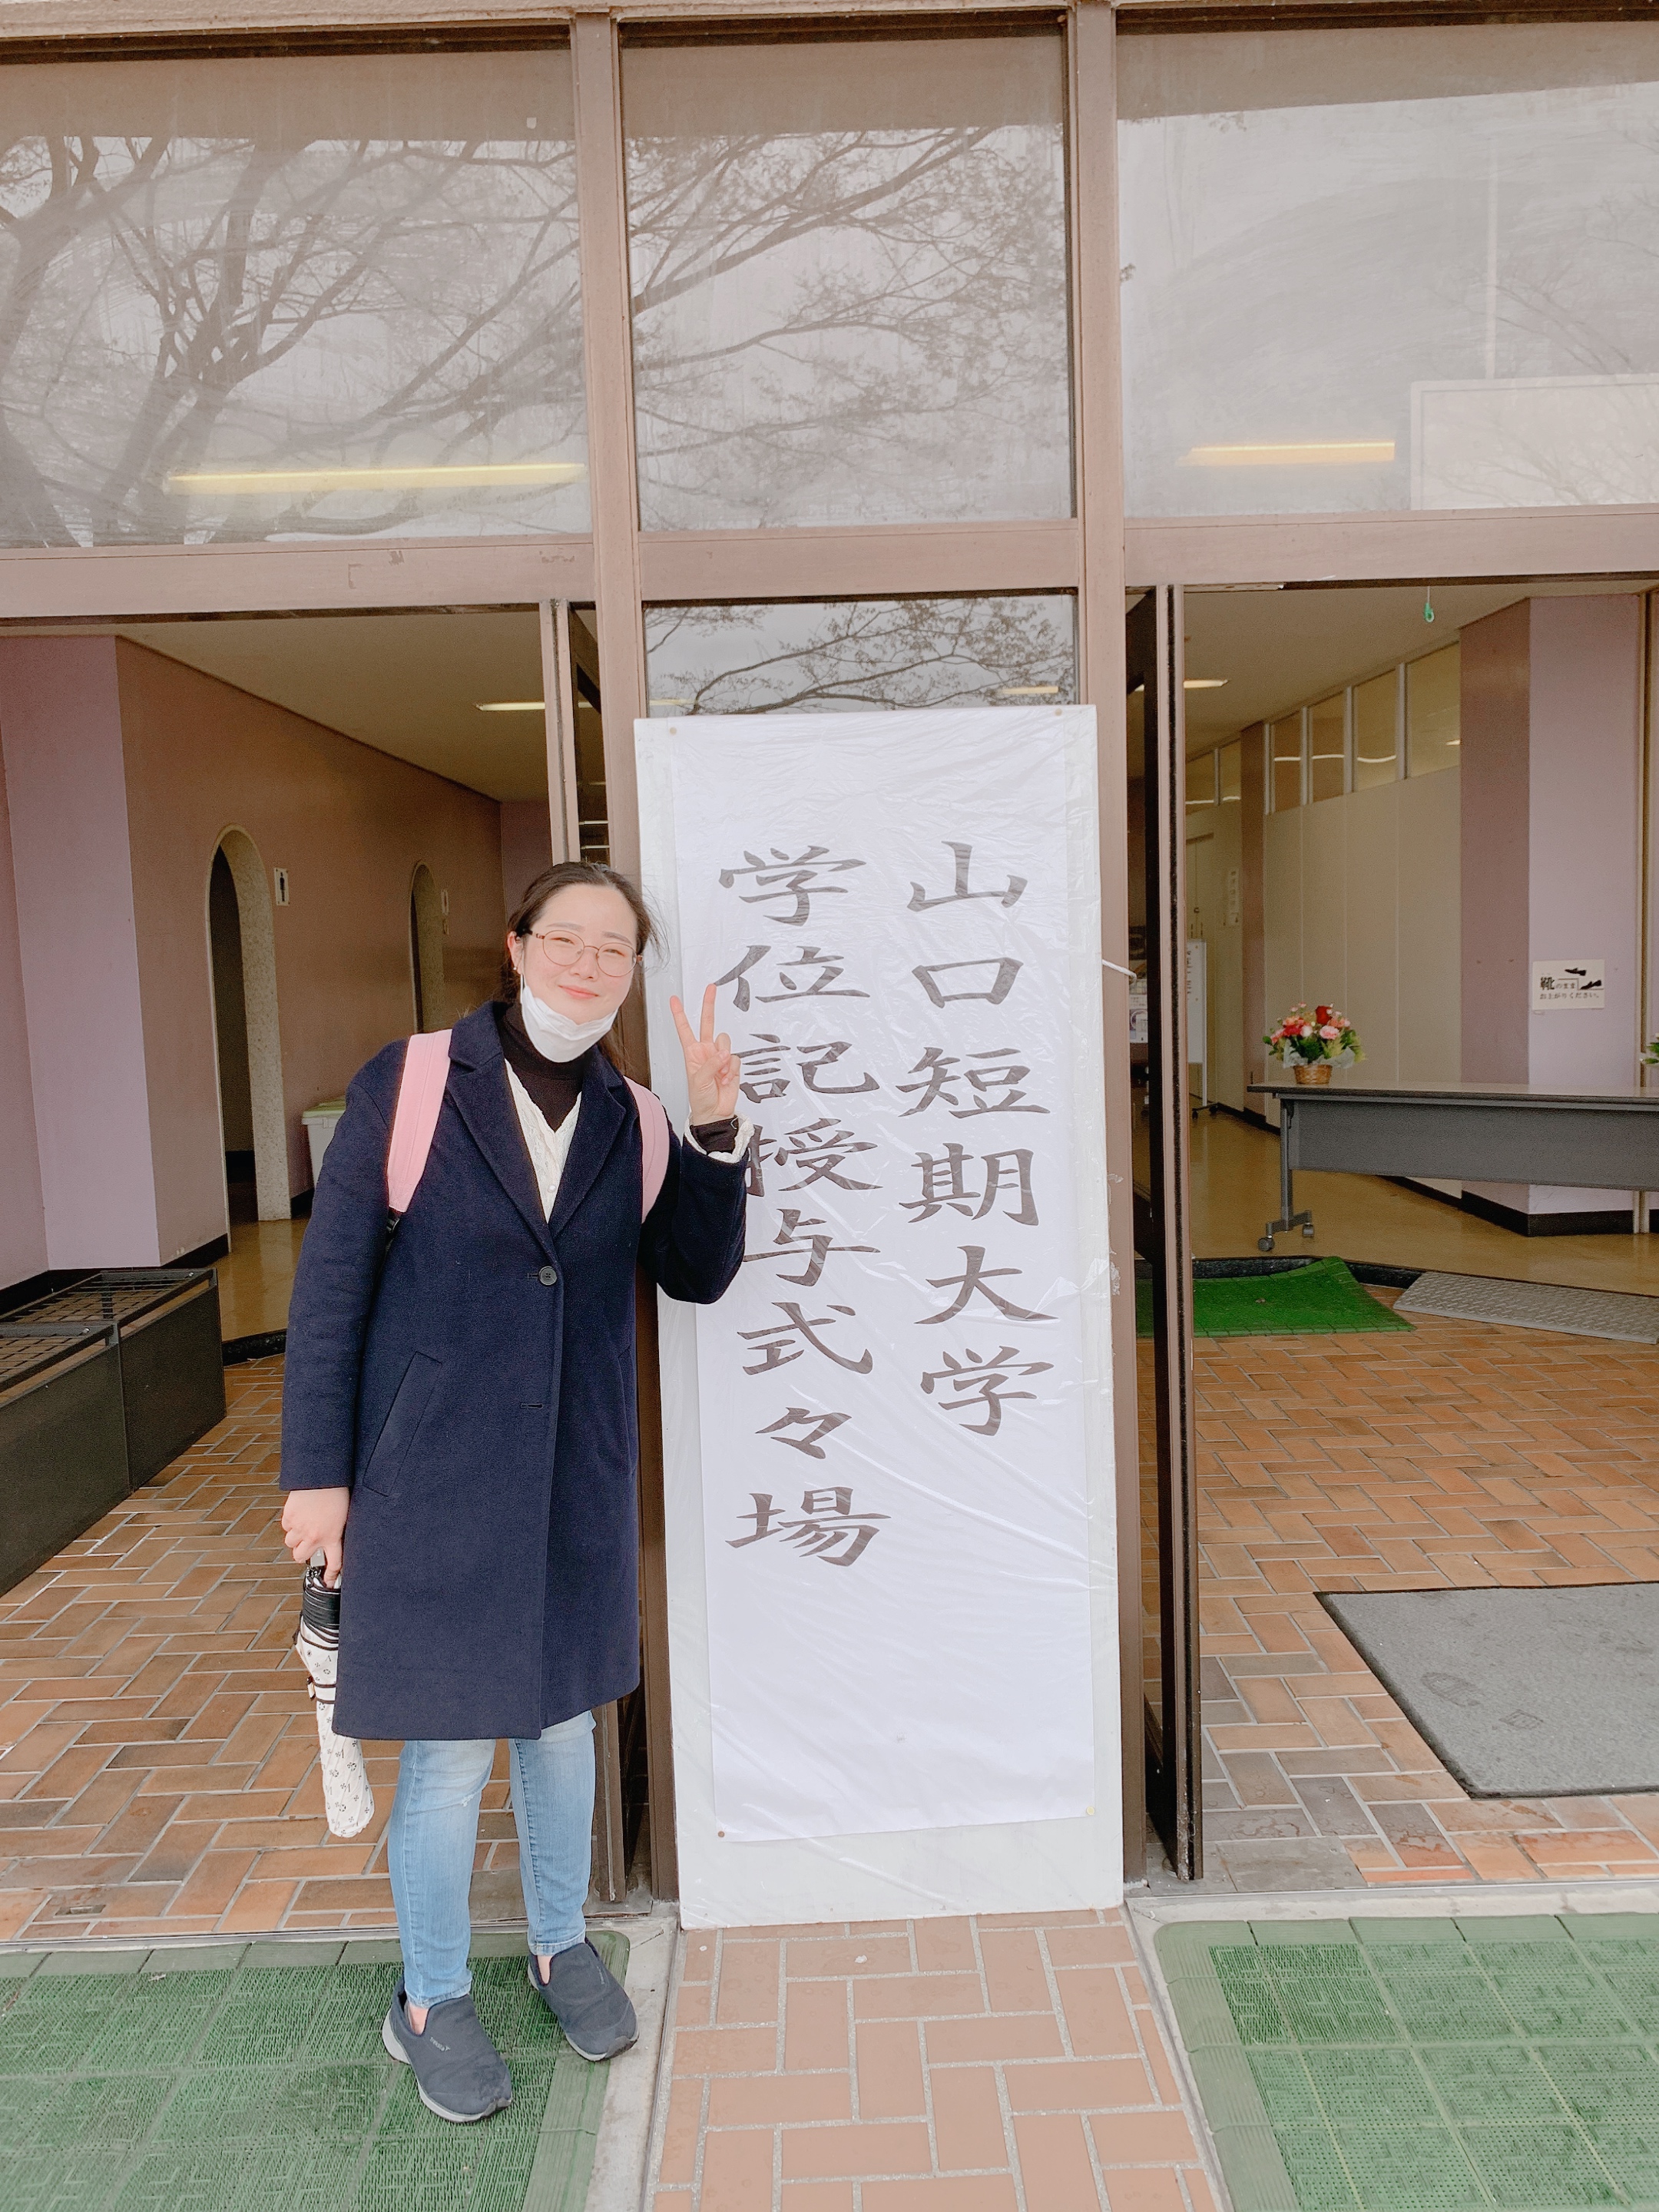 山口短期大学
学位記授与式々場
靴のまま
お上がりください。